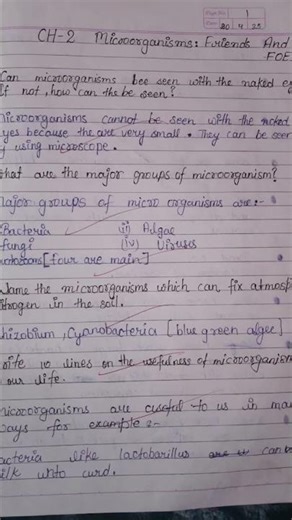 Page No. 1
Date 20 4 25
CH-2 Microorganisms: Friends And
FOE
Can microorganisms bee seen with the naked e
If not, how can the be seen?
Microorganisms cannot be seen with the naked
yes because the are very small. They can be seen
y using microscope.
hat are the major groups of microorganism?
Major groups of micro organisms are:-
Bacteria ii) Algae
fungi (iv) Viruses
[four are main]
Name the microorganisms which can fix atmosp
itrogen in the soil.
hizobium, Cyanobacteria [blue green algee]
rite 10 lines on the usefulness of microorganism
our life.
Microorganisms are useful to us in ma
ways for example :-
acteria like lactobarillus are can
ilk unto curd.